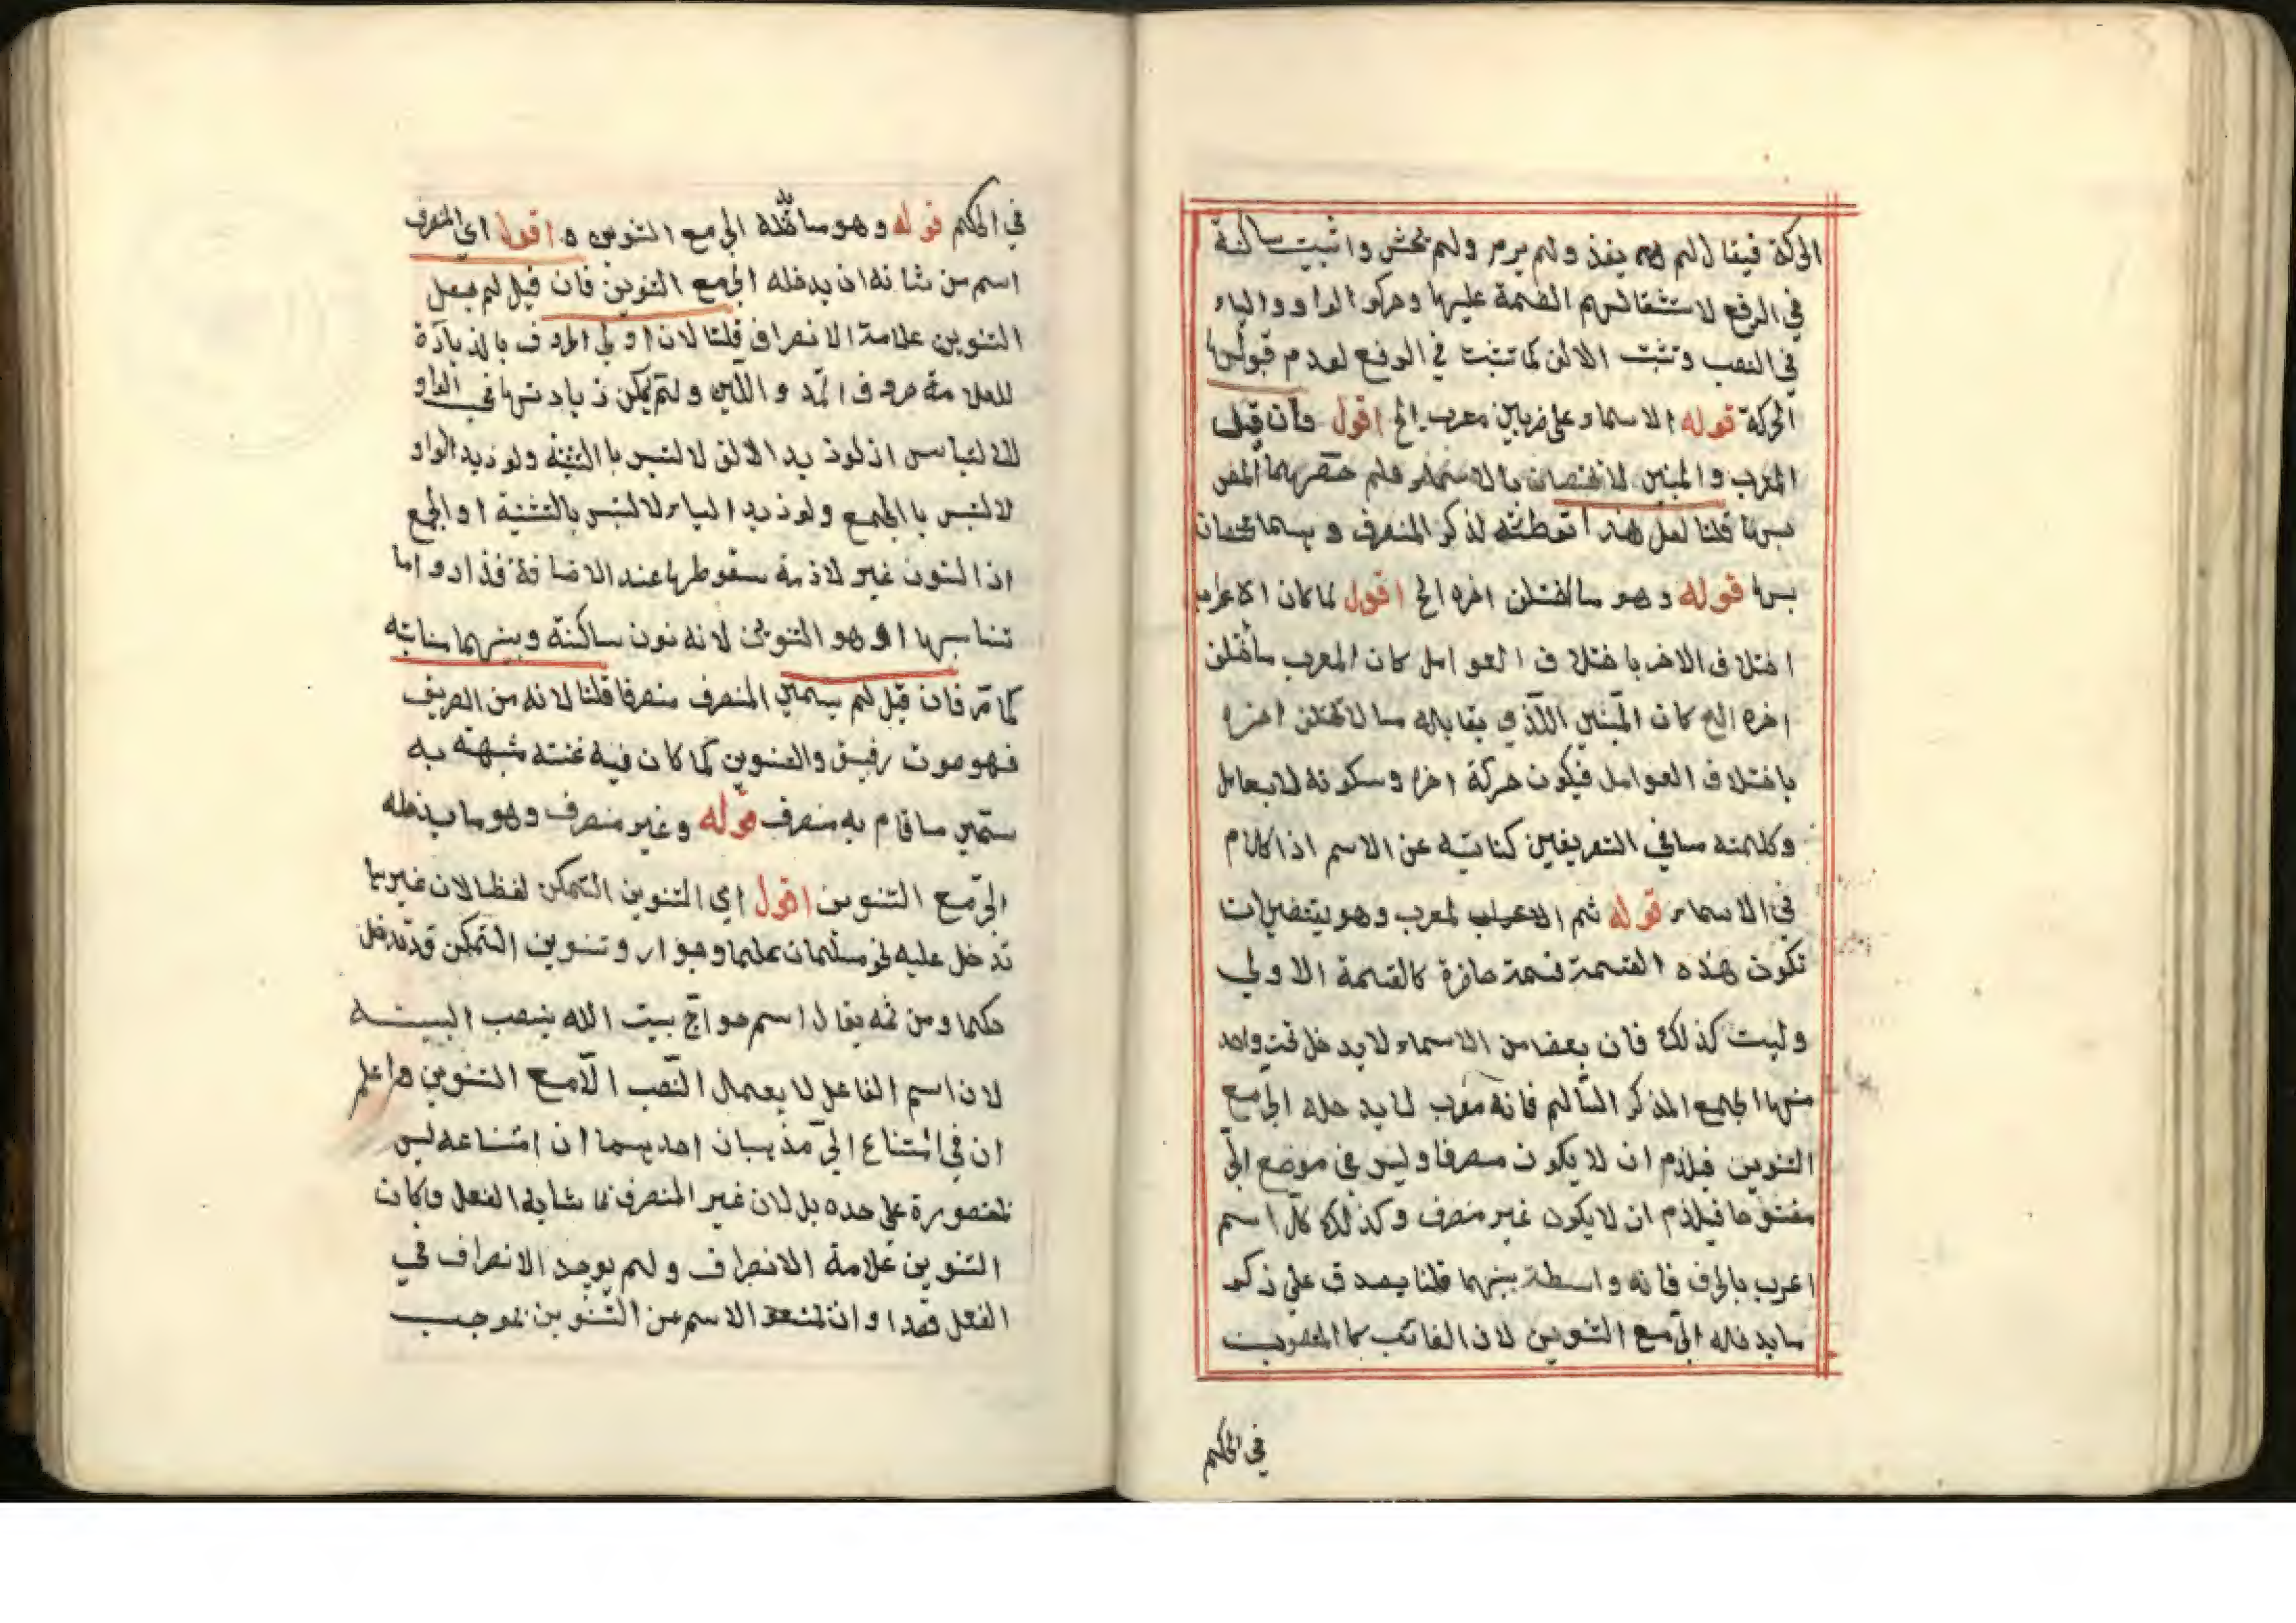 الحركة فيقال لم يغز ولم يرم ولم يخش واثبت ساكنة
في الرفع لاستثقالهم الضمة عليها وحركوا الواو والياء
في النصب وتثبت الالف كما تثبت في الرفع لعدم قبولها
الحركة قوله الاسماء على ضربين معرب الخ اقول فان قيل
المعرب والمبني لا تختصان بالاسماء فلم حصرهما المص
بها قلنا لعل هذا توطئة لذكر المنصرف وهما مختصان
بها قوله وهو ما اختلف اخره الخ اقول لما كان الاعراب
اختلاف الاخر باختلاف العوامل كان المعرب ما اختلف
اخره الخ كان المبني الذي يقابله ما لا تختلف اخره
باختلاف العوامل فيكون حركة اخره وسكونه لا بعامل
وكلمته ما في التعريفين كناية عن الاسم اذ الكلام
في الاسماء قوله ثم الاعراب لمعرب وهو يتضمن ان
تكون هذه القسمة قسمة حاصرة كالقسمة الاولى
وليست كذلك فان بعضا من الاسماء لا يدخل تحت واحد
منها الجمع المذكر السالم فانه معرب لا يدخله الجر مع
التنوين فيلزم ان لا يكون منصرفا وليس في موضع الجر
مفتوحا فيلزم ان لا يكون غير منصرف وكذلك كل اسم
اعرب بالحرف فانه واسطة بينهما قلنا يصدق على ذكر
ما يدخله الجر مع التنوين لان الغائب كالمنصوب
في الحكم
في الحكم قوله وهو ما يدخله الجر مع التنوين اقول اي المنصرف
اسم من شانه ان يدخله الجر مع التنوين فان قيل لم جعل
التنوين علامة الانصراف قلنا لان اولى الحروف بالزيادة
للعلامة حروف المد واللين ولم يكن زيادتها في الواو
للالتباس اذ لو زيد الالف لالتبس بالتثنية ولو زيد الواو
لالتبس بالجمع ولو زيد الياء لالتبس بالتثنية او الجمع
اذ النون غير لازمة سقوطها عند الاضافة فزادوا ما
تناسبها وهو التنوين لانه نون ساكنة وبينهما مناسبة
كما مر فان قيل لم سمي المنصرف منصرفا قلنا لانه من الصريف
فهو صوت رفيق والتنوين لما كان فيه غنة شبهته به
سمي ما قام به منصرف قوله وغير منصرف وهو ما يدخله
الجر مع التنوين اقول اي التنوين التمكن لفظا لان غيرها
تدخل عليه نحو مسلمات علما وجوار وتنوين التمكن قد تدخل
حكما ومن ثمه يقال اسم حواج بيت الله بنصب البيت
لان اسم الفاعل لا يعمل النصب الا مع التنوين واعلم
ان في امتناع الجر مذهبان احديهما ان امتناعه ليس
لمقصورة على حده بل لان غير المنصرف لما شابه الفعل وكان
التنوين علامة الانصراف ولم يوجد الانصراف في
الفعل قصدوا ان تمنعوا الاسم من التنوين بموجب